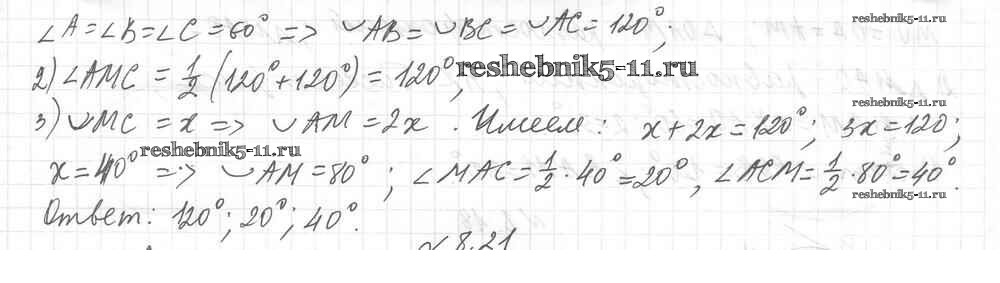 reshebnik5-11.ru
∠A=∠B=∠C=60° => ◡AB=◡BC=◡AC=120°;
2) ∠AMC = 1/2 (120°+120°) = 120°;
reshebnik5-11.ru
reshebnik5-11.ru
3) ◡MC = x => ◡AM = 2x. Имеем: x+2x=120°; 3x=120;
reshebnik5-11.ru
x=40° => ◡AM=80°; ∠MAC=1/2·40°=20°, ∠ACM=1/2·80°=40°.
reshebnik5-11.ru
Ответ: 120°; 20°; 40°.
8.21